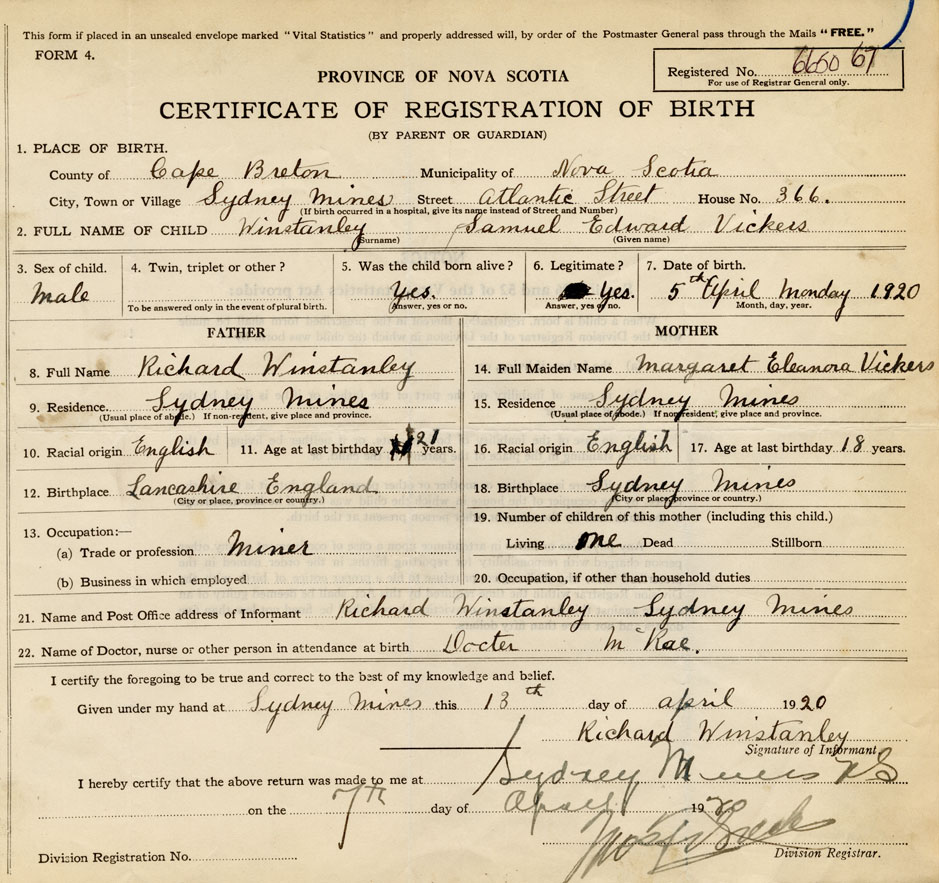 This form if placed in an unsealed envelope marked "Vital Statistics" and properly addressed will, by order of the Postmaster General pass through the Mails "FREE."
FORM 4.
PROVINCE OF NOVA SCOTIA
Registered No. 6650 67
For use of Registrar General only.
CERTIFICATE OF REGISTRATION OF BIRTH
(BY PARENT OR GUARDIAN)
1. PLACE OF BIRTH.
County of Cape Breton Municipality of Nova Scotia
City, Town or Village Sydney Mines Street Atlantic Street House No. 366.
(If birth occurred in a hospital, give its name instead of Street and Number)
2. FULL NAME OF CHILD Winstanley Samuel Edward Vickers
(Surname) (Given name)
3. Sex of child. 4. Twin, triplet or other? 5. Was the child born alive? 6. Legitimate? 7. Date of birth.
Male Yes. Yes. 5th April Monday 1920
To be answered only in the event of plural birth. Answer, yes or no. Answer, yes or no. Month, day, year.
FATHER MOTHER
8. Full Name Richard Winstanley 14. Full Maiden Name Margaret Eleanora Vickers
9. Residence. Sydney Mines 15. Residence Sydney Mines
(Usual place of abode.) If non-resident, give place and province. (Usual place of abode.) If nonresident, give place and province.
10. Racial origin English 11. Age at last birthday 21 years. 16. Racial origin English 17. Age at last birthday 18 years.
12. Birthplace Lancashire England 18. Birthplace Sydney Mines
(City or place, province or country.) (City or place, province or country.)
13. Occupation:— 19. Number of children of this mother (including this child.)
(a) Trade or profession Miner Living one Dead Stillborn
(b) Business in which employed 20. Occupation, if other than household duties
21. Name and Post Office address of Informant Richard Winstanley Sydney Mines
22. Name of Doctor, nurse or other person in attendance at birth Docter McRae.
I certify the foregoing to be true and correct to the best of my knowledge and belief.
Given under my hand at Sydney Mines this 13th day of april 1920
Richard Winstanley
Signature of Informant
I hereby certify that the above return was made to me at Sydney Mines NS
on the 7th day of April 1920
Division Registration No. Division Registrar.